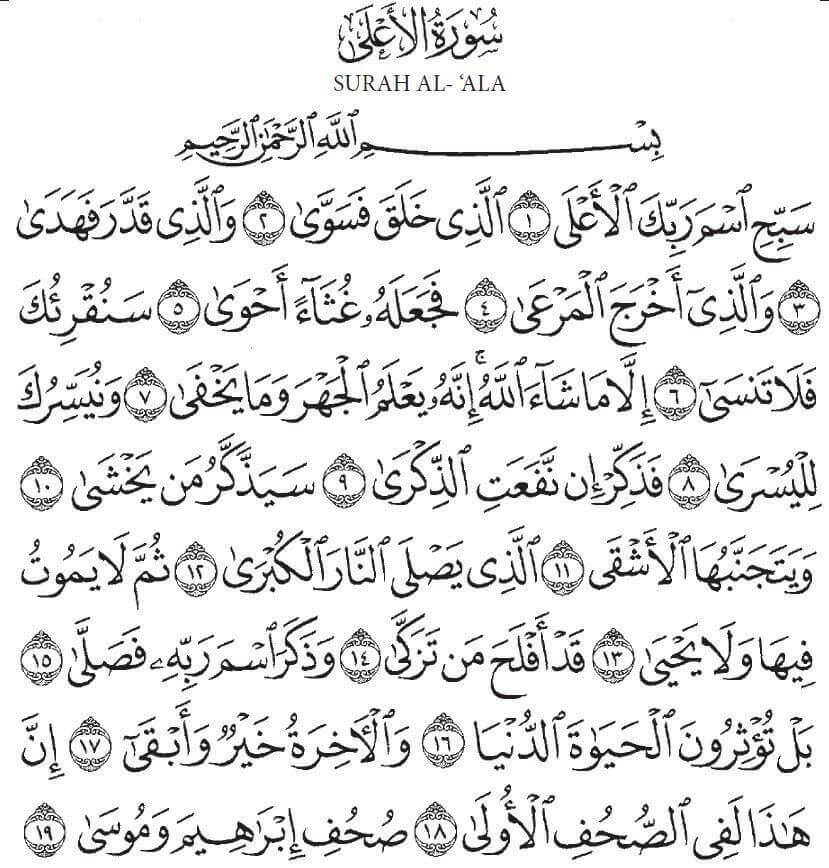 سُورَةُ الأَعْلَى
SURAH AL- ‘ALA
بِسْمِ ٱللَّهِ ٱلرَّحْمَٰنِ ٱلرَّحِيمِ
سَبِّحِ ٱسْمَ رَبِّكَ ٱلْأَعْلَى ١ ٱلَّذِى خَلَقَ فَسَوَّىٰ ٢ وَٱلَّذِى قَدَّرَ فَهَدَىٰ
٣ وَٱلَّذِىٓ أَخْرَجَ ٱلْمَرْعَىٰ ٤ فَجَعَلَهُۥ غُثَآءً أَحْوَىٰ ٥ سَنُقْرِئُكَ
فَلَا تَنسَىٰٓ ٦ إِلَّا مَا شَآءَ ٱللَّهُ ۚ إِنَّهُۥ يَعْلَمُ ٱلْجَهْرَ وَمَا يَخْفَىٰ ٧ وَنُيَسِّرُكَ
لِلْيُسْرَىٰ ٨ فَذَكِّرْ إِن نَّفَعَتِ ٱلذِّكْرَىٰ ٩ سَيَذَّكَّرُ مَن يَخْشَىٰ ١٠
وَيَتَجَنَّبُهَا ٱلْأَشْقَى ١١ ٱلَّذِى يَصْلَى ٱلنَّارَ ٱلْكُبْرَىٰ ١٢ ثُمَّ لَا يَمُوتُ
فِيهَا وَلَا يَحْيَىٰ ١٣ قَدْ أَفْلَحَ مَن تَزَكَّىٰ ١٤ وَذَكَرَ ٱسْمَ رَبِّهِۦ فَصَلَّىٰ ١٥
بَلْ تُؤْثِرُونَ ٱلْحَيَوٰةَ ٱلدُّنْيَا ١٦ وَٱلْءَاخِرَةُ خَيْرٌ وَأَبْقَىٰٓ ١٧ إِنَّ
هَٰذَا لَفِى ٱلصُّحُفِ ٱلْأُولَىٰ ١٨ صُحُفِ إِبْرَٰهِيمَ وَمُوسَىٰ ١٩